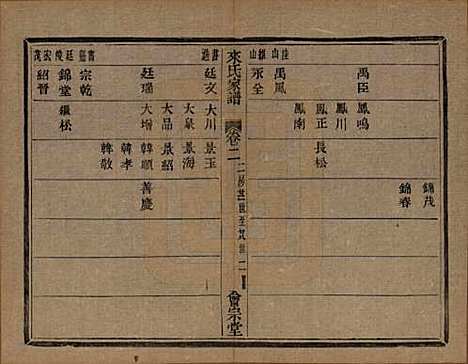 禹臣
鳳鳴
錦茂
錦春
鳳川
鳳正
長松
鳳南
山
禹鳳
山
永全
來氏家譜
卷二
二
會宗堂
廷文
大川
景玉
大泉
景海
大品
景紹
廷瑞
大增
韓順
善慶
韓孝
韓敬
宗乾
錦堂
繼松
紹晉